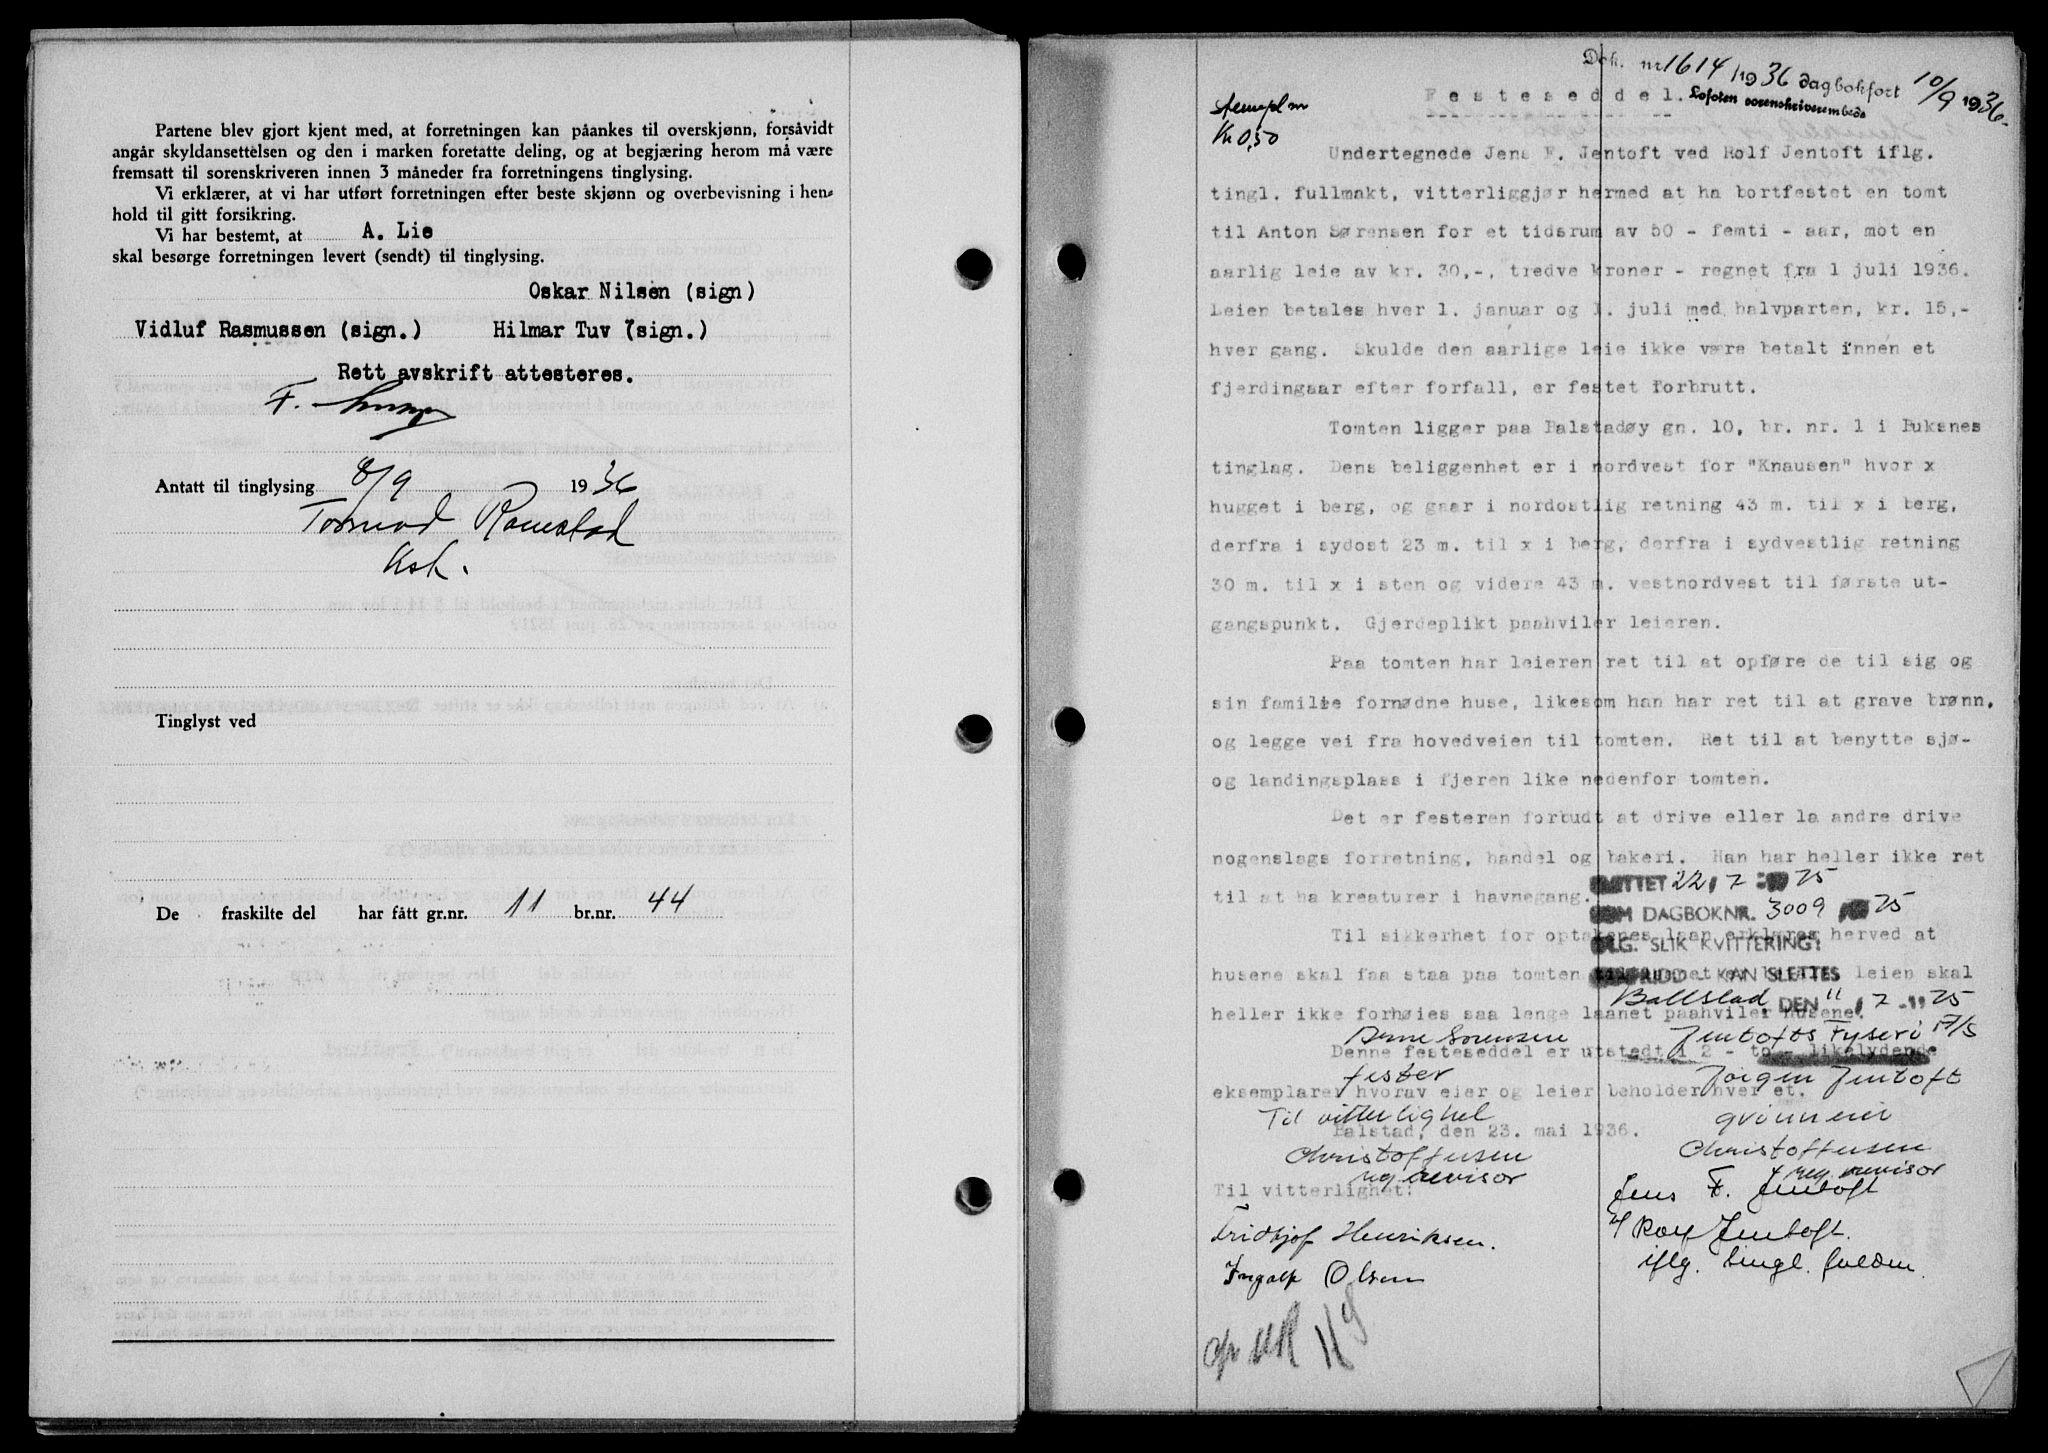 Partene blev gjort kjent med, at forretningen kan påankes til overskjønn, forsåvidt
angår skyldansettelsen og den i marken foretatte deling, og at begjæring herom må være
fremsatt til sorenskriveren innen 3 måneder fra forretningens tinglysing.
Vi erklærer, at vi har utført forretningen efter beste skjønn og overbevisning i hen-
hold til gitt forsikring.
Vi har bestemt, at A. Lie
skal besørge forretningen levert (sendt) til tinglysing.
Oskar Nilsen (sign)
Vidluf Rasmussen (sign.) Hilmar Tuv (sign.)
Rett avskrift attesteres.
F.
Antatt til tinglysing 8/9 1936
Tormod Ramstad
Ksk.
Tinglyst ved
De fraskilte del har fått gr.nr. 11 br.nr. 44
Dok. nr 1614/1936 dagbokført 10/9 1936
Lofoten sorenskriverembede
Festeseddel.
Stempl m
Kr 0,50
Undertegnede Jens F. Jentoft ved Rolf Jentoft iflg.
tingl. fullmakt, vitterliggjør hermed at ha bortfestet en tomt
til Anton Sørensen for et tidsrum av 50 - femti - aar, mot en
aarlig leie av kr. 30,-, tredve kroner - regnet fra 1 juli 1936.
Leien betales hver 1. januar og 1. juli med halvparten, kr. 15,-
hver gang. Skulde den aarlige leie ikke være betalt innen et
fjerdingaar efter forfall, er festet forbrutt.
Tomten ligger paa Balstadøy gn. 10, br. nr. 1 i Buksnes
tinglag. Dens beliggenhet er i nordvest for "Knausen" hvor x
hugget i berg, og gaar i nordostlig retning 43 m. til x i berg,
derfra i sydost 23 m. til x i berg, derfra i sydvestlig retning
30 m. til x i sten og videre 43 m. vestnordvest til første ut-
gangspunkt. Gjerdeplikt paahviler leieren.
Paa tomten har leieren ret til at opføre de til sig og
sin familie fornødne huse, likesom han har ret til at grave brønn,
og legge vei fra hovedveien til tomten. Ret til at benytte sjø-
og landingsplass i fjeren like nedenfor tomten.
Det er festeren forbudt at drive eller la andre drive
nogenslags forretning, handel og bakeri. Han har heller ikke ret
til at ha kreaturer i havnegang.
SLETTET 22/7 - 75
SOM DAGBOKNR. 3009 75
Til sikkerhet for optakenes laan erklæres herved at
IFLG. SLIK KVITTERING:
husene skal faa staa paa tomten til laanet er betalt, leien skal
KAN SLETTES
Ballstad, DEN 11/7 - 1975
heller ikke forhøies saa lenge laanet paahviler husene.
Arne Sørensen Jentofts Fryseri A/S
Denne festeseddel er utstedt i 2 - to - likelydende
fester Jørgen Jentoft
eksemplarer hvorav eier og leier beholder hver et.
Til vitterlighet grunneier
Balstad, den 23. mai 1936.
Christoffersen Christoffersen
reg revisor reg. revisor
Til vitterlighet:
Jens F. Jentoft
Fridtjof Henriksen. Rolf Jentoft.
Ingolf Olsen iflg. tingl. fuldm.